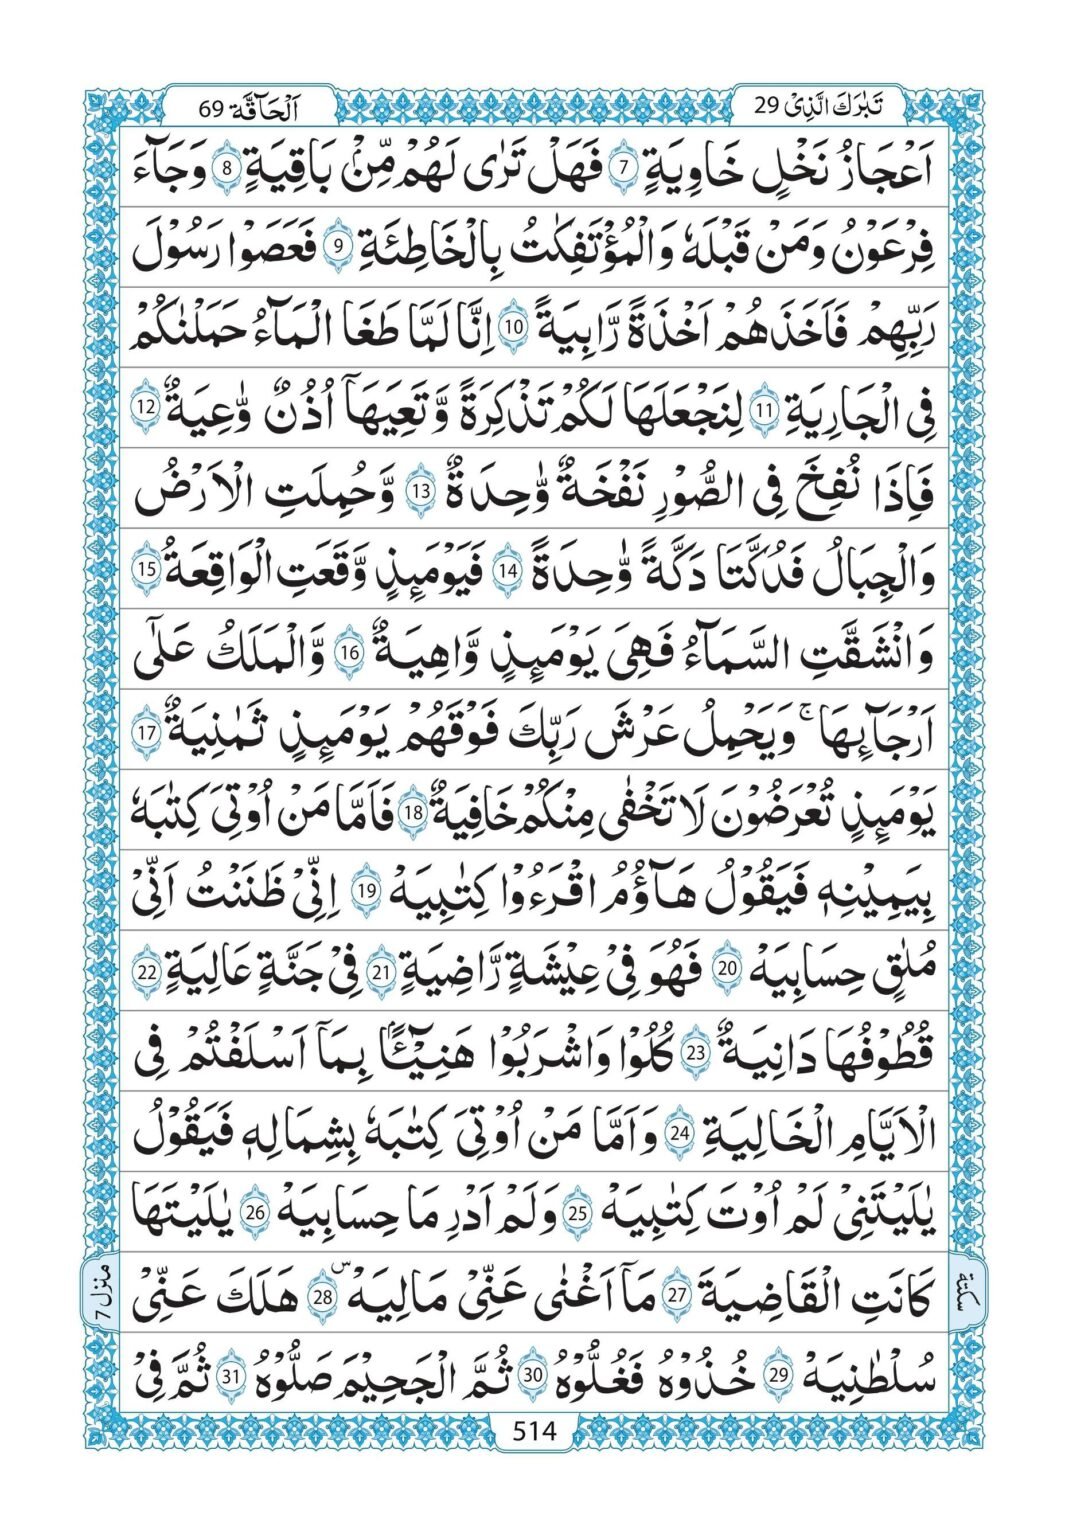 تَبٰرَكَ الَّذِیْ 29
اَلْحَآقَّة 69
اَعْجَازُ نَخْلٍ خَاوِیَةٍ 7 فَهَلْ تَرٰی لَهُمْ مِّنْۢ بَاقِیَةٍ 8 وَجَآءَ
فِرْعَوْنُ وَمَنْ قَبْلَهٗ وَالْمُؤْتَفِكٰتُ بِالْخَاطِئَةِ 9 فَعَصَوْا رَسُوْلَ
رَبِّهِمْ فَاَخَذَهُمْ اَخْذَةً رَّابِیَةً 10 اِنَّا لَمَّا طَغَا الْمَآءُ حَمَلْنٰكُمْ
فِی الْجَارِیَةِ 11 لِنَجْعَلَهَا لَكُمْ تَذْكِرَةً وَّتَعِیَهَاۤ اُذُنٌ وَّاعِیَةٌ 12
فَاِذَا نُفِخَ فِی الصُّوْرِ نَفْخَةٌ وَّاحِدَةٌ 13 وَّحُمِلَتِ الْاَرْضُ
وَالْجِبَالُ فَدُكَّتَا دَكَّةً وَّاحِدَةً 14 فَیَوْمَىِٕذٍ وَّقَعَتِ الْوَاقِعَةُ 15
وَانْشَقَّتِ السَّمَآءُ فَهِیَ یَوْمَىِٕذٍ وَّاهِیَةٌ 16 وَّالْمَلَكُ عَلٰۤی
اَرْجَآىِٕهَا ۚ وَیَحْمِلُ عَرْشَ رَبِّكَ فَوْقَهُمْ یَوْمَىِٕذٍ ثَمٰنِیَةٌ 17
یَوْمَىِٕذٍ تُعْرَضُوْنَ لَا تَخْفٰی مِنْكُمْ خَافِیَةٌ 18 فَاَمَّا مَنْ اُوْتِیَ كِتٰبَهٗ
بِیَمِیْنِهٖ فَیَقُوْلُ هَآؤُمُ اقْرَءُوْا كِتٰبِیَهْ 19 اِنِّیْ ظَنَنْتُ اَنِّیْ
مُلٰقٍ حِسَابِیَهْ 20 فَهُوَ فِیْ عِیْشَةٍ رَّاضِیَةٍ 21 فِیْ جَنَّةٍ عَالِیَةٍ 22
قُطُوْفُهَا دَانِیَةٌ 23 كُلُوْا وَاشْرَبُوْا هَنِیْٓـًٔۢا بِمَاۤ اَسْلَفْتُمْ فِی
الْاَیَّامِ الْخَالِیَةِ 24 وَاَمَّا مَنْ اُوْتِیَ كِتٰبَهٗ بِشِمَالِهٖ فَیَقُوْلُ
یٰلَیْتَنِیْ لَمْ اُوْتَ كِتٰبِیَهْ 25 وَلَمْ اَدْرِ مَا حِسَابِیَهْ 26 یٰلَیْتَهَا
كَانَتِ الْقَاضِیَةَ 27 مَاۤ اَغْنٰی عَنِّیْ مَالِیَهْ س 28 هَلَكَ عَنِّیْ
سُلْطٰنِیَهْ 29 خُذُوْهُ فَغُلُّوْهُ 30 ثُمَّ الْجَحِیْمَ صَلُّوْهُ 31 ثُمَّ فِیْ
سکتة
منزل 7
514